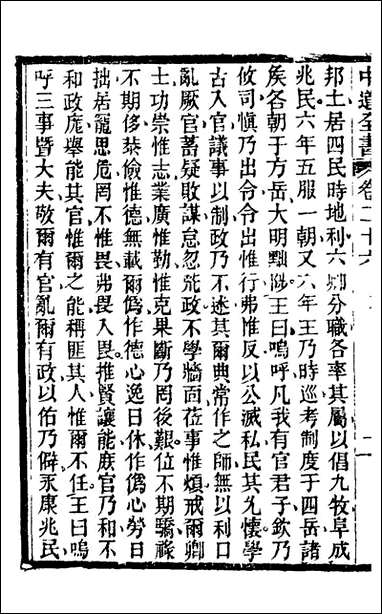 全書 卷二十六
邦土居四民時地利六卿分職各率其屬以倡九牧阜成
兆民六年五服一朝又六年王乃時巡考制度于四岳諸
矦各朝于方岳大明黜陟王曰嗚呼凡我有官君子欽乃
攸司慎乃出令令出惟行弗惟反以公滅私民其允懷學
古入官議事以制政乃不迷其爾典常作之師無以利口
亂厥官蓄疑敗謀怠忽荒政不學牆面莅事惟煩戒爾卿
士功崇惟志業廣惟勤惟克果斷乃罔後艱位不期驕祿
不期侈恭儉惟德無載爾僞作德心逸日休作僞心勞日
拙居寵思危罔不惟畏弗畏入畏推賢讓能庶官乃和不
和政厖舉能其官惟爾之能稱匪其人惟爾不任王曰嗚
呼三事暨大夫敬爾有官亂爾有政以佑乃僻永康兆民